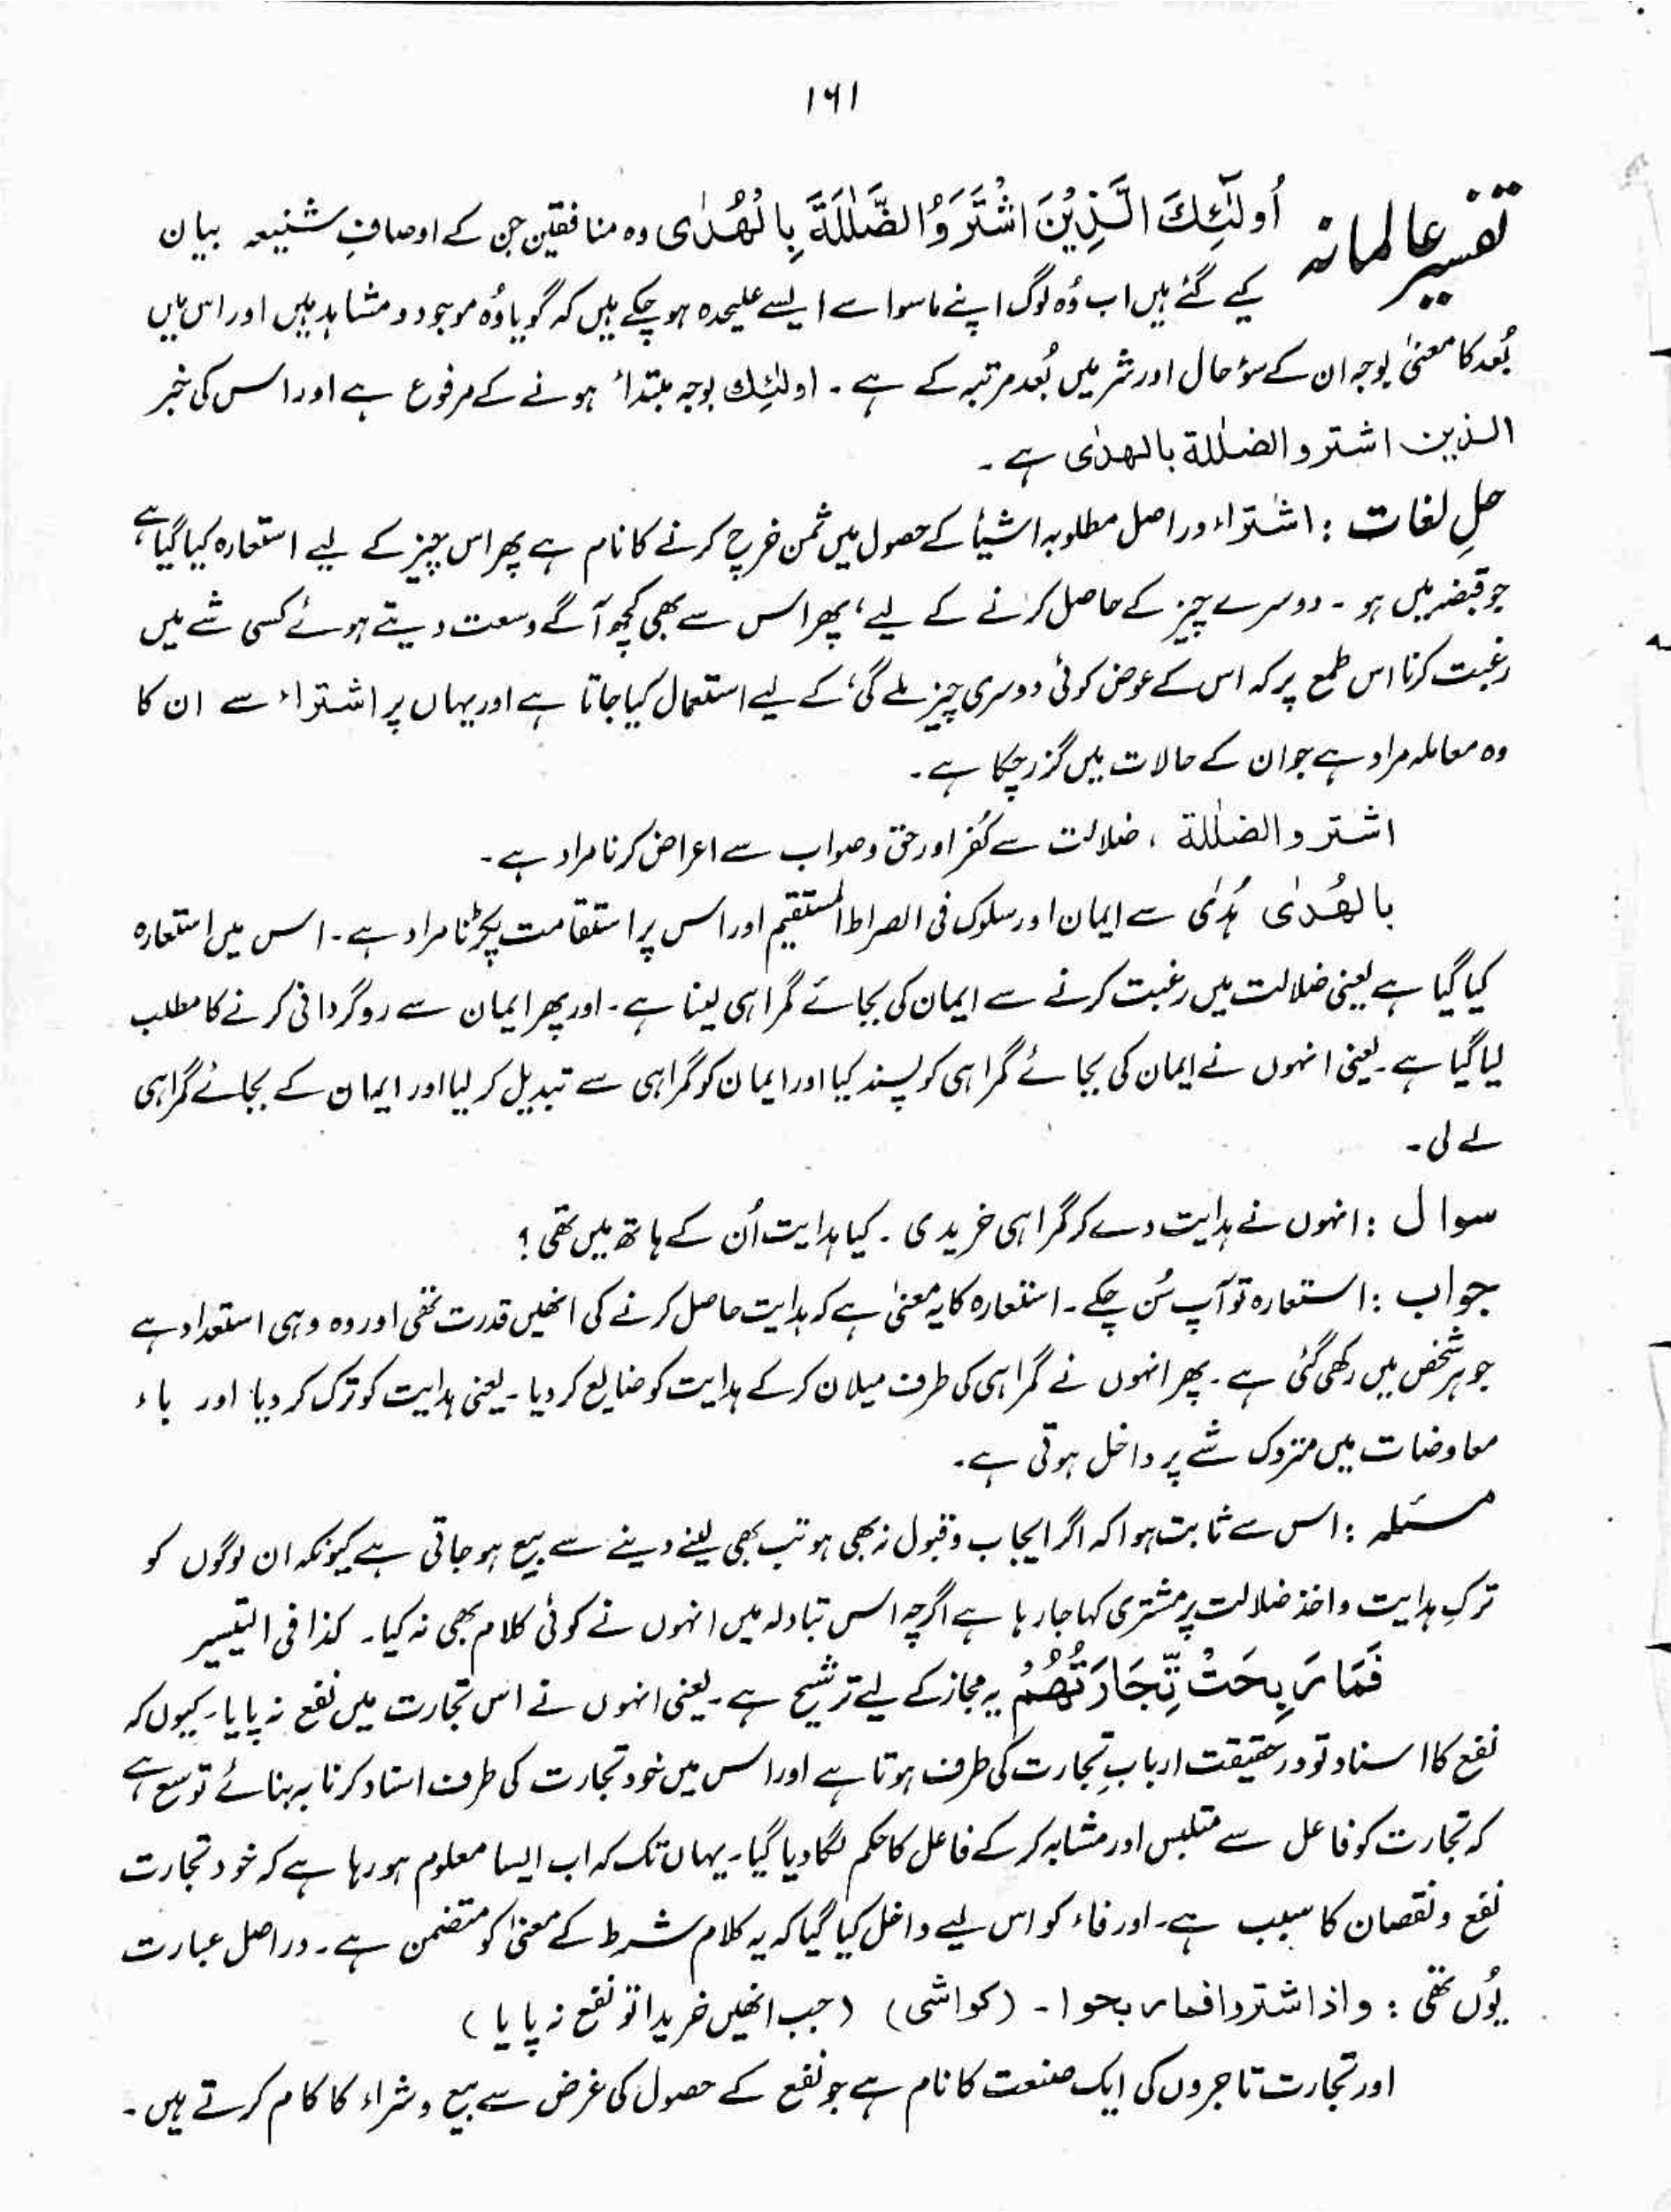 ۱۶۱
تفسیر عالمانہ اُولٰٓئِكَ الَّذِیْنَ اشْتَرَوُا الضَّلٰلَةَ بِالْهُدٰى وہ منافقین جن کے اوصافِ شنیعہ بیان
کیے گئے ہیں اب وُہ لوگ اپنے ماسوا سے ایسے علیحدہ ہو چکے ہیں کہ گویا وُہ موجود و مشاہد ہیں اور اس میں
بُعد کا معنیٰ بوجہ ان کے سؤ حال اور شر میں بُعد مرتبہ کے ہے ۔ اولٰئِك بوجہ مبتداءٔ ہونے کے مرفوع ہے اور اس کی خبر
الذین اشتروا الضلٰلة بالهدٰى ہے ۔
حلِ لغات : اشتراء دراصل مطلوبہ اشیأ کے حصول میں ثمن خرچ کرنے کا نام ہے پھر اس چیز کے لیے استعارہ کیا گیا ہے
جو قبضہ میں ہو ۔ دوسرے چیز کے حاصل کرنے کے لیے ، پھر اس سے بھی کچھ آگے وسعت دیتے ہوئے کسی شے میں
رغبت کرنا اس طمع پر کہ اس کے عوض کوئی دوسری چیز ملے گی ، کے لیے استعمال کیا جاتا ہے اور یہاں پر اشتراء سے ان کا
وہ معاملہ مراد ہے جو ان کے حالات میں گزر چکا ہے ۔
اشتروا الضلٰلة ، ضلالت سے کفر اور حق و صواب سے اعراض کرنا مراد ہے ۔
بالهُدٰى ہُدیٰ سے ایمان اور سلوک فی الصراط المستقیم اور اس پر استقامت پکڑنا مراد ہے ۔ اس میں استعارہ
کیا گیا ہے یعنی ضلالت میں رغبت کرنے سے ایمان کی بجائے گمراہی لینا ہے ۔ اور پھر ایمان سے روگردانی کرنے کا مطلب
لیا گیا ہے ۔ یعنی انہوں نے ایمان کی بجائے گمراہی کو پسند کیا اور ایمان کو گمراہی سے تبدیل کر لیا اور ایمان کے بجائے گمراہی
لے لی ۔
سوال : انہوں نے ہدایت دے کر گمراہی خریدی ۔ کیا ہدایت اُن کے ہاتھ میں تھی ؟
جواب : استعارہ تو آپ سُن چکے ۔ استعارہ کا یہ معنیٰ ہے کہ ہدایت حاصل کرنے کی انھیں قدرت تھی اور وہ وہی استعداد ہے
جو ہر شخص میں رکھی گئی ہے ۔ پھر انہوں نے گمراہی کی طرف میلان کر کے ہدایت کو ضایع کر دیا ۔ یعنی ہدایت کو ترک کر دیا اور باء
معاوضات میں متروک شے پر داخل ہوتی ہے ۔
مسئلہ : اس سے ثابت ہوا کہ اگر ایجاب و قبول نہ بھی ہو تب بھی لینے دینے سے بیع ہو جاتی ہے کیونکہ ان لوگوں کو
ترکِ ہدایت و اخذ ضلالت پر مشتری کہا جا رہا ہے اگرچہ اس تبادلہ میں انہوں نے کوئی کلام بھی نہ کیا ۔ کذا فی التیسیر
فَمَا رَبِحَتْ تِّجَارَتُهُمْ یہ مجاز کے لیے ترشیح ہے ۔ یعنی انہوں نے اس تجارت میں نفع نہ پایا ۔ کیوں کہ
نفع کا اسناد تو در حقیقت اربابِ تجارت کی طرف ہوتا ہے اور اس میں خود تجارت کی طرف اسناد کرنا بر بنائے توسع ہے
کہ تجارت کو فاعل سے متلبس اور مشابہ کر کے فاعل کا حکم لگا دیا گیا ۔ یہاں تک کہ اب ایسا معلوم ہو رہا ہے کہ خود تجارت
نفع و نقصان کا سبب ہے ۔ اور فاء کو اس لیے داخل کیا گیا کہ یہ کلام شرط کے معنیٰ کو متضمن ہے ۔ دراصل عبارت
یُوں تھی : واذا اشتروا فما ربحوا ۔ (کواشی) (جب انھیں خریدا تو نفع نہ پایا )
اور تجارت تاجروں کی ایک صنعت کا نام ہے جو نفع کے حصول کی غرض سے بیع و شراء کا کام کرتے ہیں ۔